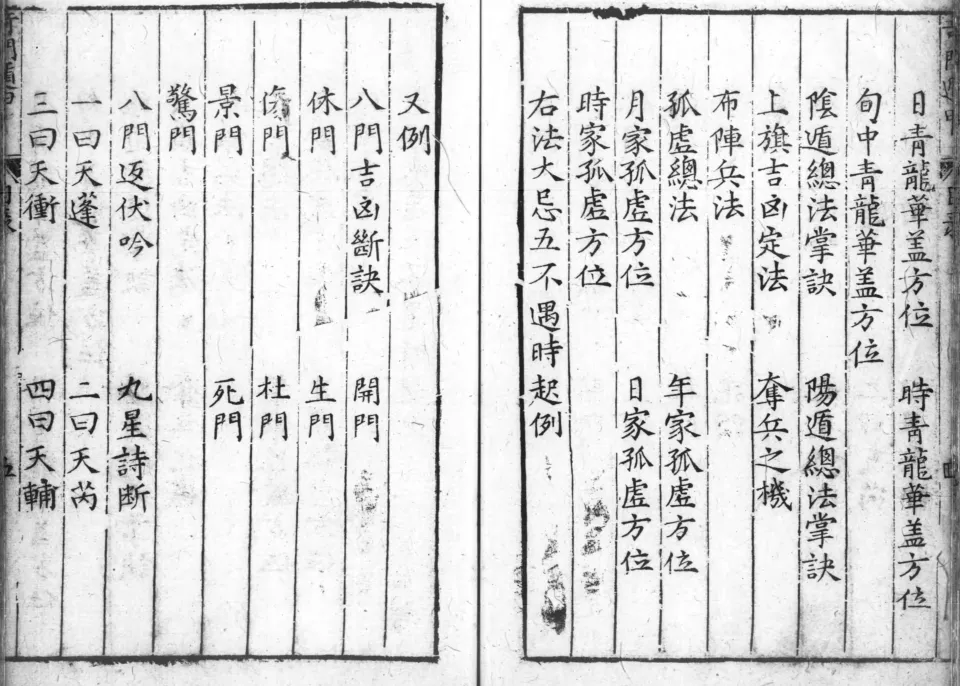 日青龍華盖方位　時青龍華盖方位
旬中青龍華盖方位
陰遁總法掌訣　陽遁總法掌訣
上旗吉凶定法　奪兵之機
布陣兵法
孤虛總法　年家孤虛方位
月家孤虛方位　日家孤虛方位
時家孤虛方位
右法大忌五不遇時起例
又例
八門吉凶斷訣　開門
休門　生門
傷門　杜門
景門　死門
驚門
八門返伏吟　九星詩断
一曰天蓬　二曰天芮
三曰天衝　四曰天輔